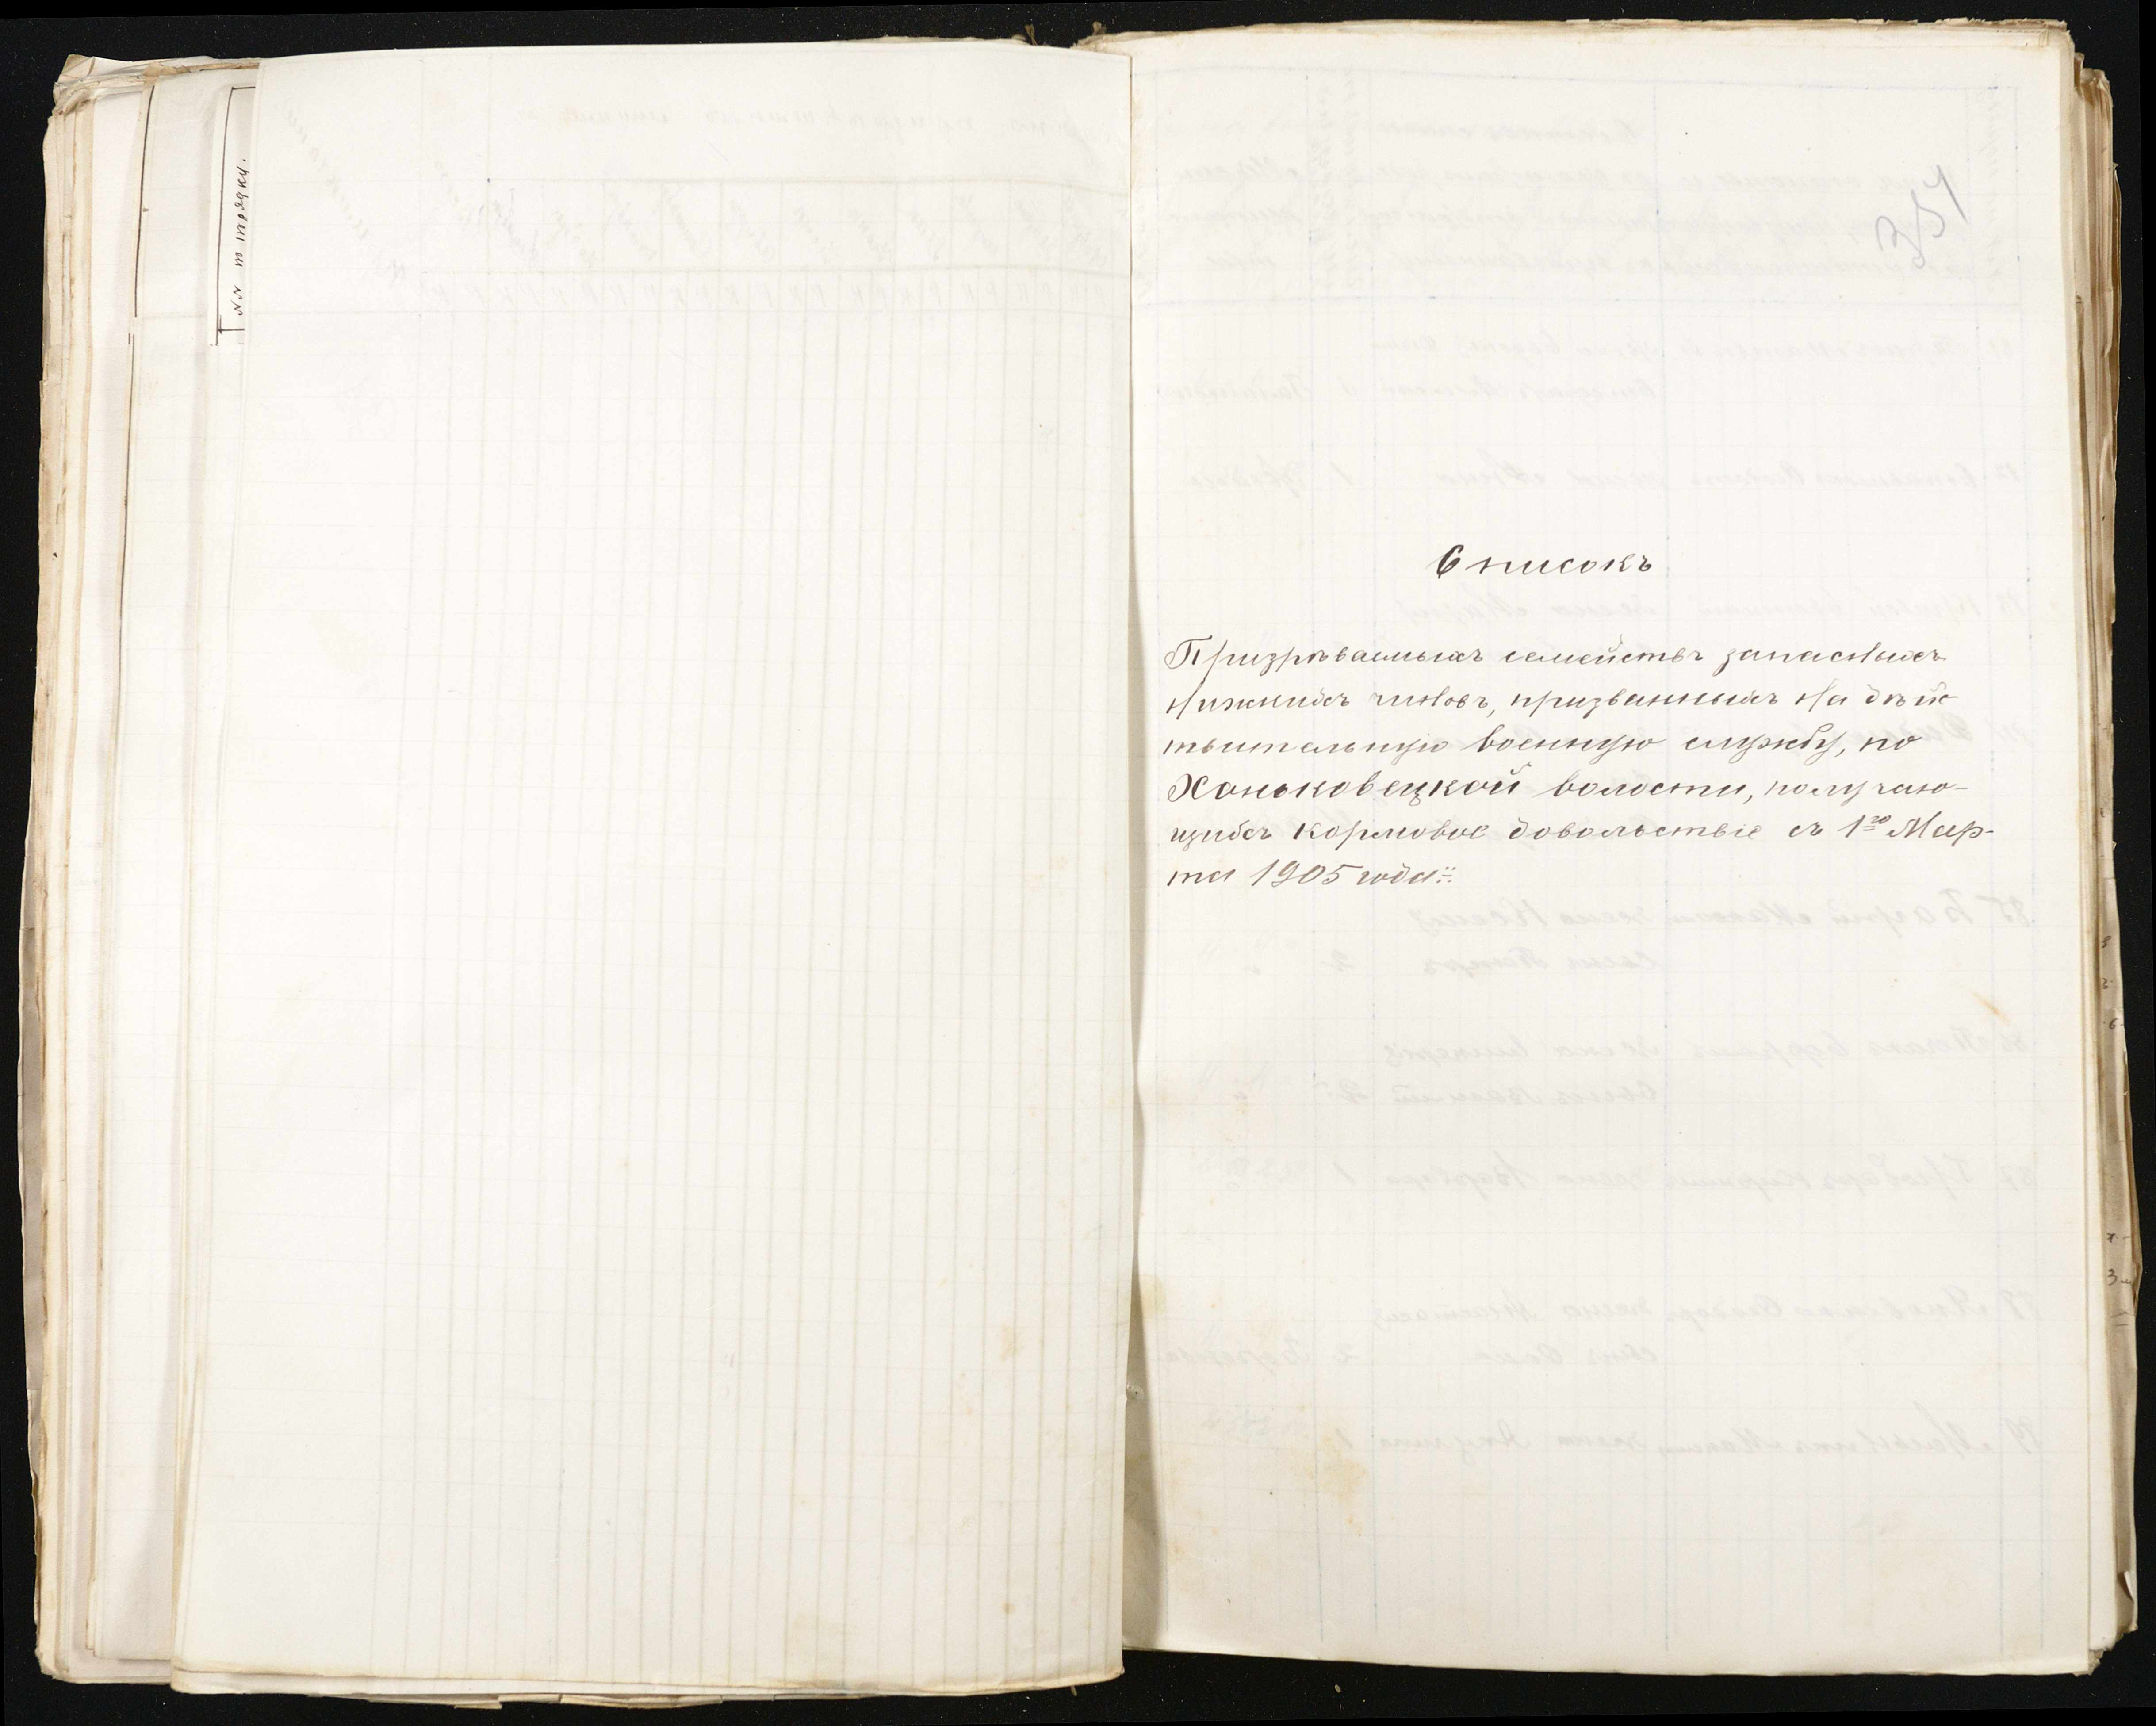 NN по порядку.
351
Списокъ
Призрѣваемыхъ семействъ запасныхъ
нижнихъ чиновъ, призванныхъ на дѣйс
твительную военную службу, по
Ханьковецкой волости, получаю-
щихъ кормовое довольствіе съ 1го Мар-
та 1905 года